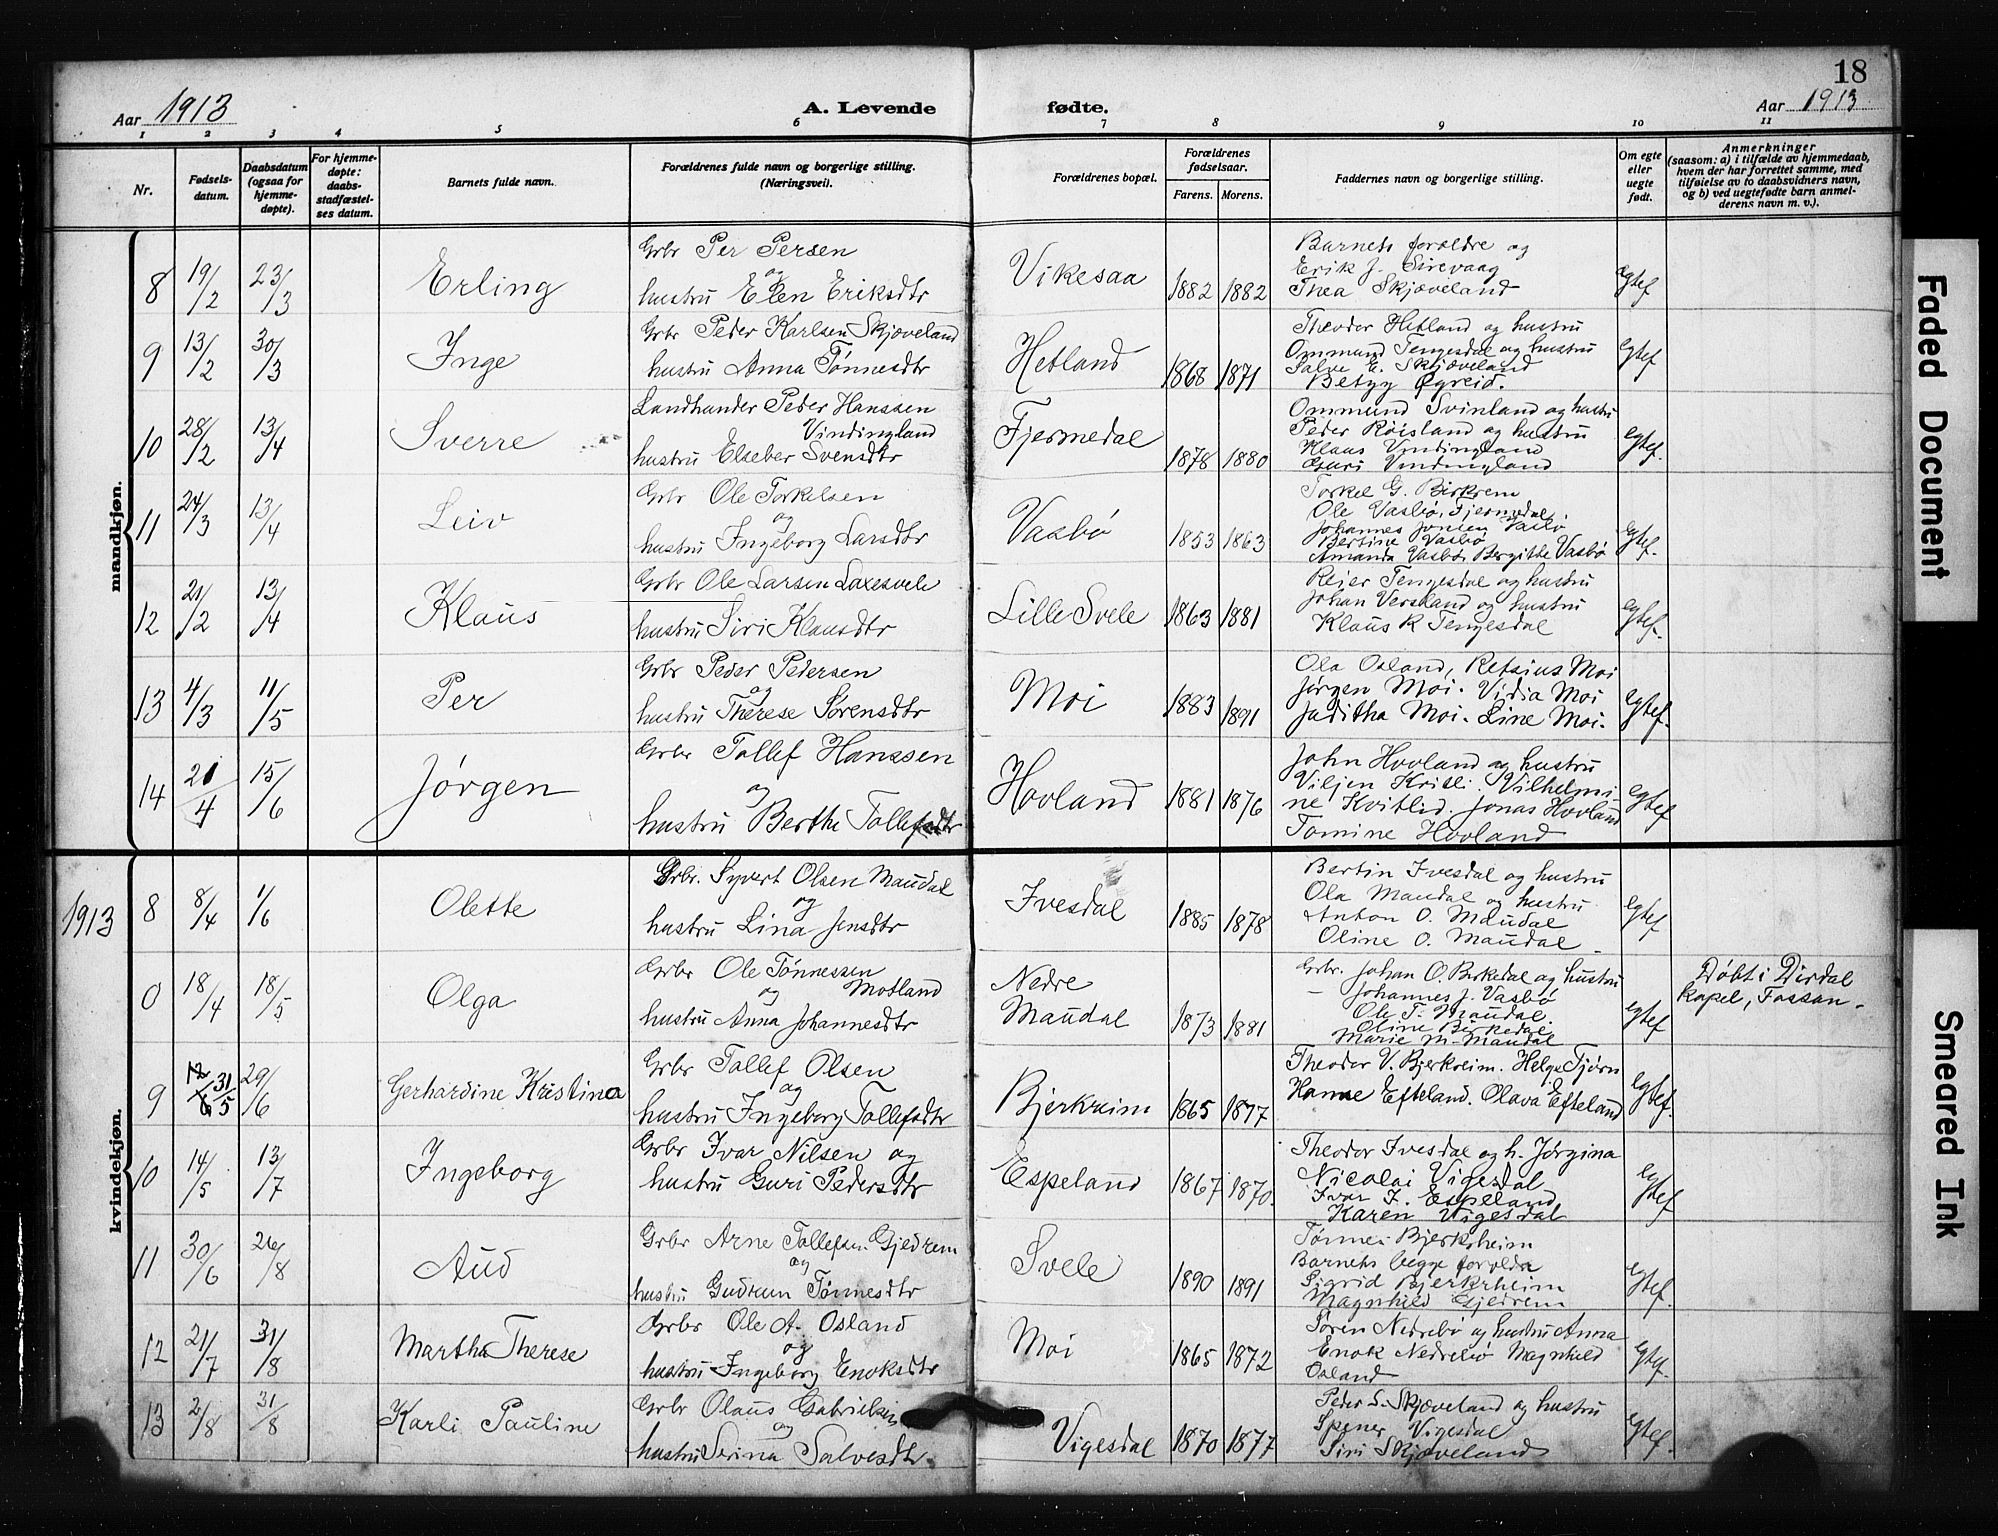 18
Aar 1913
A. Levende fødte.
Aar 1913
1 2 3 4 5 6 7 8 9 10 11
Nr.
Fødsels-
datum.
Daabsdatum
(ogsaa for
hjemme-
døpte).
For hjemme-
døpte:
daabs-
stadfæstel-
ses datum.
Barnets fulde navn.
Forældrenes fulde navn og borgerlige stilling.
(Næringsvei).
Forældrenes bopæl.
Forældrenes
fødselsaar.
Farens. Morens.
Faddernes navn og borgerlige stilling.
Om egte
eller
uegte
født.
Anmerkninger
(saasom: a) i tilfælde av hjemmedaab,
hvem der har forrettet samme, med
tilføielse av to daabsvidners navn,
og b) ved uegtefødte barn anmel-
derens navn m. v.).
mandkjøn.
8 19/2 23/3 Erling
Grbr Per Persen
og
hustru Elen Eriksdtr
Vikesaa 1882 1882
Barnets forældre og
Erik J. Sirevaag
Thea Skjæveland
egtef
9 13/2 30/3 Inge
Grbr Peder Karlsen Skjæveland
hustru Anna Tønnesdtr
Hetland 1868 1871
Theodor Hetland og hustru
Ommund Tengesdal og hustru
Salve E. Skjæveland
Betzy Øgreid.
egtef
10 28/2 13/4 Sverre
Landhandler Peder Hanssen
Vindingland
hustru Elseber Svensdtr
Fjermedal 1878 1880
Ommund Svinland og hustru
Peder Røisland og hustru
Klaus Vindingland
Guri Vindingland
egtef.
11 24/3 13/4 Leiv
Grbr Ole Torkelsen
og
hustru Ingeborg Larsdtr
Vasbø 1853 1863
Torkel G. Birkrem
Ole Vasbø, Fjermedal
Johannes Jonsen Vasbø
Bertine Vasbø
Amanda Vasbø. Bergitte Vasbø
egtef.
12 21/2 13/4 Klaus
Grbr Ole Larsen Laxesvele
hustru Siri Klausdtr
Lille Svele 1863 1881
Reier Tengesdal og hustru
Johan Versland og hustru
Klaus R Tengesdal
egtef.
13 4/3 11/5 Per
Grbr Peder Pedersen
og
hustru Therese Sørensdtr
Moi 1883 1891
Ola Osland, Retsius Moi
Jørgen Moi. Vidia Moi
Juditha Moi. Line Moi.
egtef.
14 21/4 15/6 Jørgen
Grbr Tollef Hanssen
og
hustru Berthe Tollefsdtr
Hovland 1881 1876
John Hovland og hustru
Viljen Kvitli. Vilhelmi
ne Kvitlid. Jonas Hovland
Tomine Hovland
egtef
1913
kvindekjøn.
8 8/4 1/6 Olette
Grbr. Syvert Olsen Maudal
og
hustru Lina Jensdtr
Ivesdal 1885 1878
Bertin Ivesdal og hustru
Ola Maudal og hustru
Anton O. Maudal
Oline O. Maudal
egtef
0 18/4 18/5 Olga
Grbr Ole Tønnessen
og Motland
hustru Anna Johannesdtr
Nedre
Maudal 1873 1881
Grbr. Johan O. Birkedal og hustru
— Johannes J. Vasbø
Ole T. Maudal.
Oline Birkedal
Marie M. Maudal
egtef
Døbt i Dirdal
kapel, Fossan.
9 12/6 31/5 29/6 Gerhardine Kristina
Grbr Tollef Olsen
og
hustru Ingeborg Tollefsdtr
Bjerkreim 1865 1877
Theodor V. Bjerkreim. Helge Tjørn
Hanne Efteland. Olava Efteland
egtef.
10 14/5 13/7 Ingeborg
Grbr Ivar Nilsen og
hustru Guri Pedersdtr
Espeland 1867 1870.
Theodor Ivesdal og h. Jørgina
Nicolai Vigesdal
Ivar I. Espeland
Karen Vigesdal
egtef
11 30/6 24/8 Aud
Grbr Arne Tollefsen Gjedrem
og
hustru Gudrun Tønnesdtr
Svele 1890 1891
Tønnes Bjerkrheim
Barnets begge forældre
Sigrid Bjerkrheim
Magnhild Gjedrem
egtef.
12 21/7 31/8 Martha Therese
Grbr Ole A. Osland
og
hustru Ingeborg Enoksdtr
Moi 1865 1872
Søren Nedrebø og hustru Anna
Enok Nedrebø Magnhild
Osland
egtef.
13 2/8 31/8 Karli Pauline
Grbr Olaus Gabrielsen
og
hustru Serina Salvesdtr
Vigesdal 1870 1877
Peder S. Skjæveland og hustru
Spener Vigesdal
Siri Skjæveland
egtef.
Faded Document
Smeared Ink